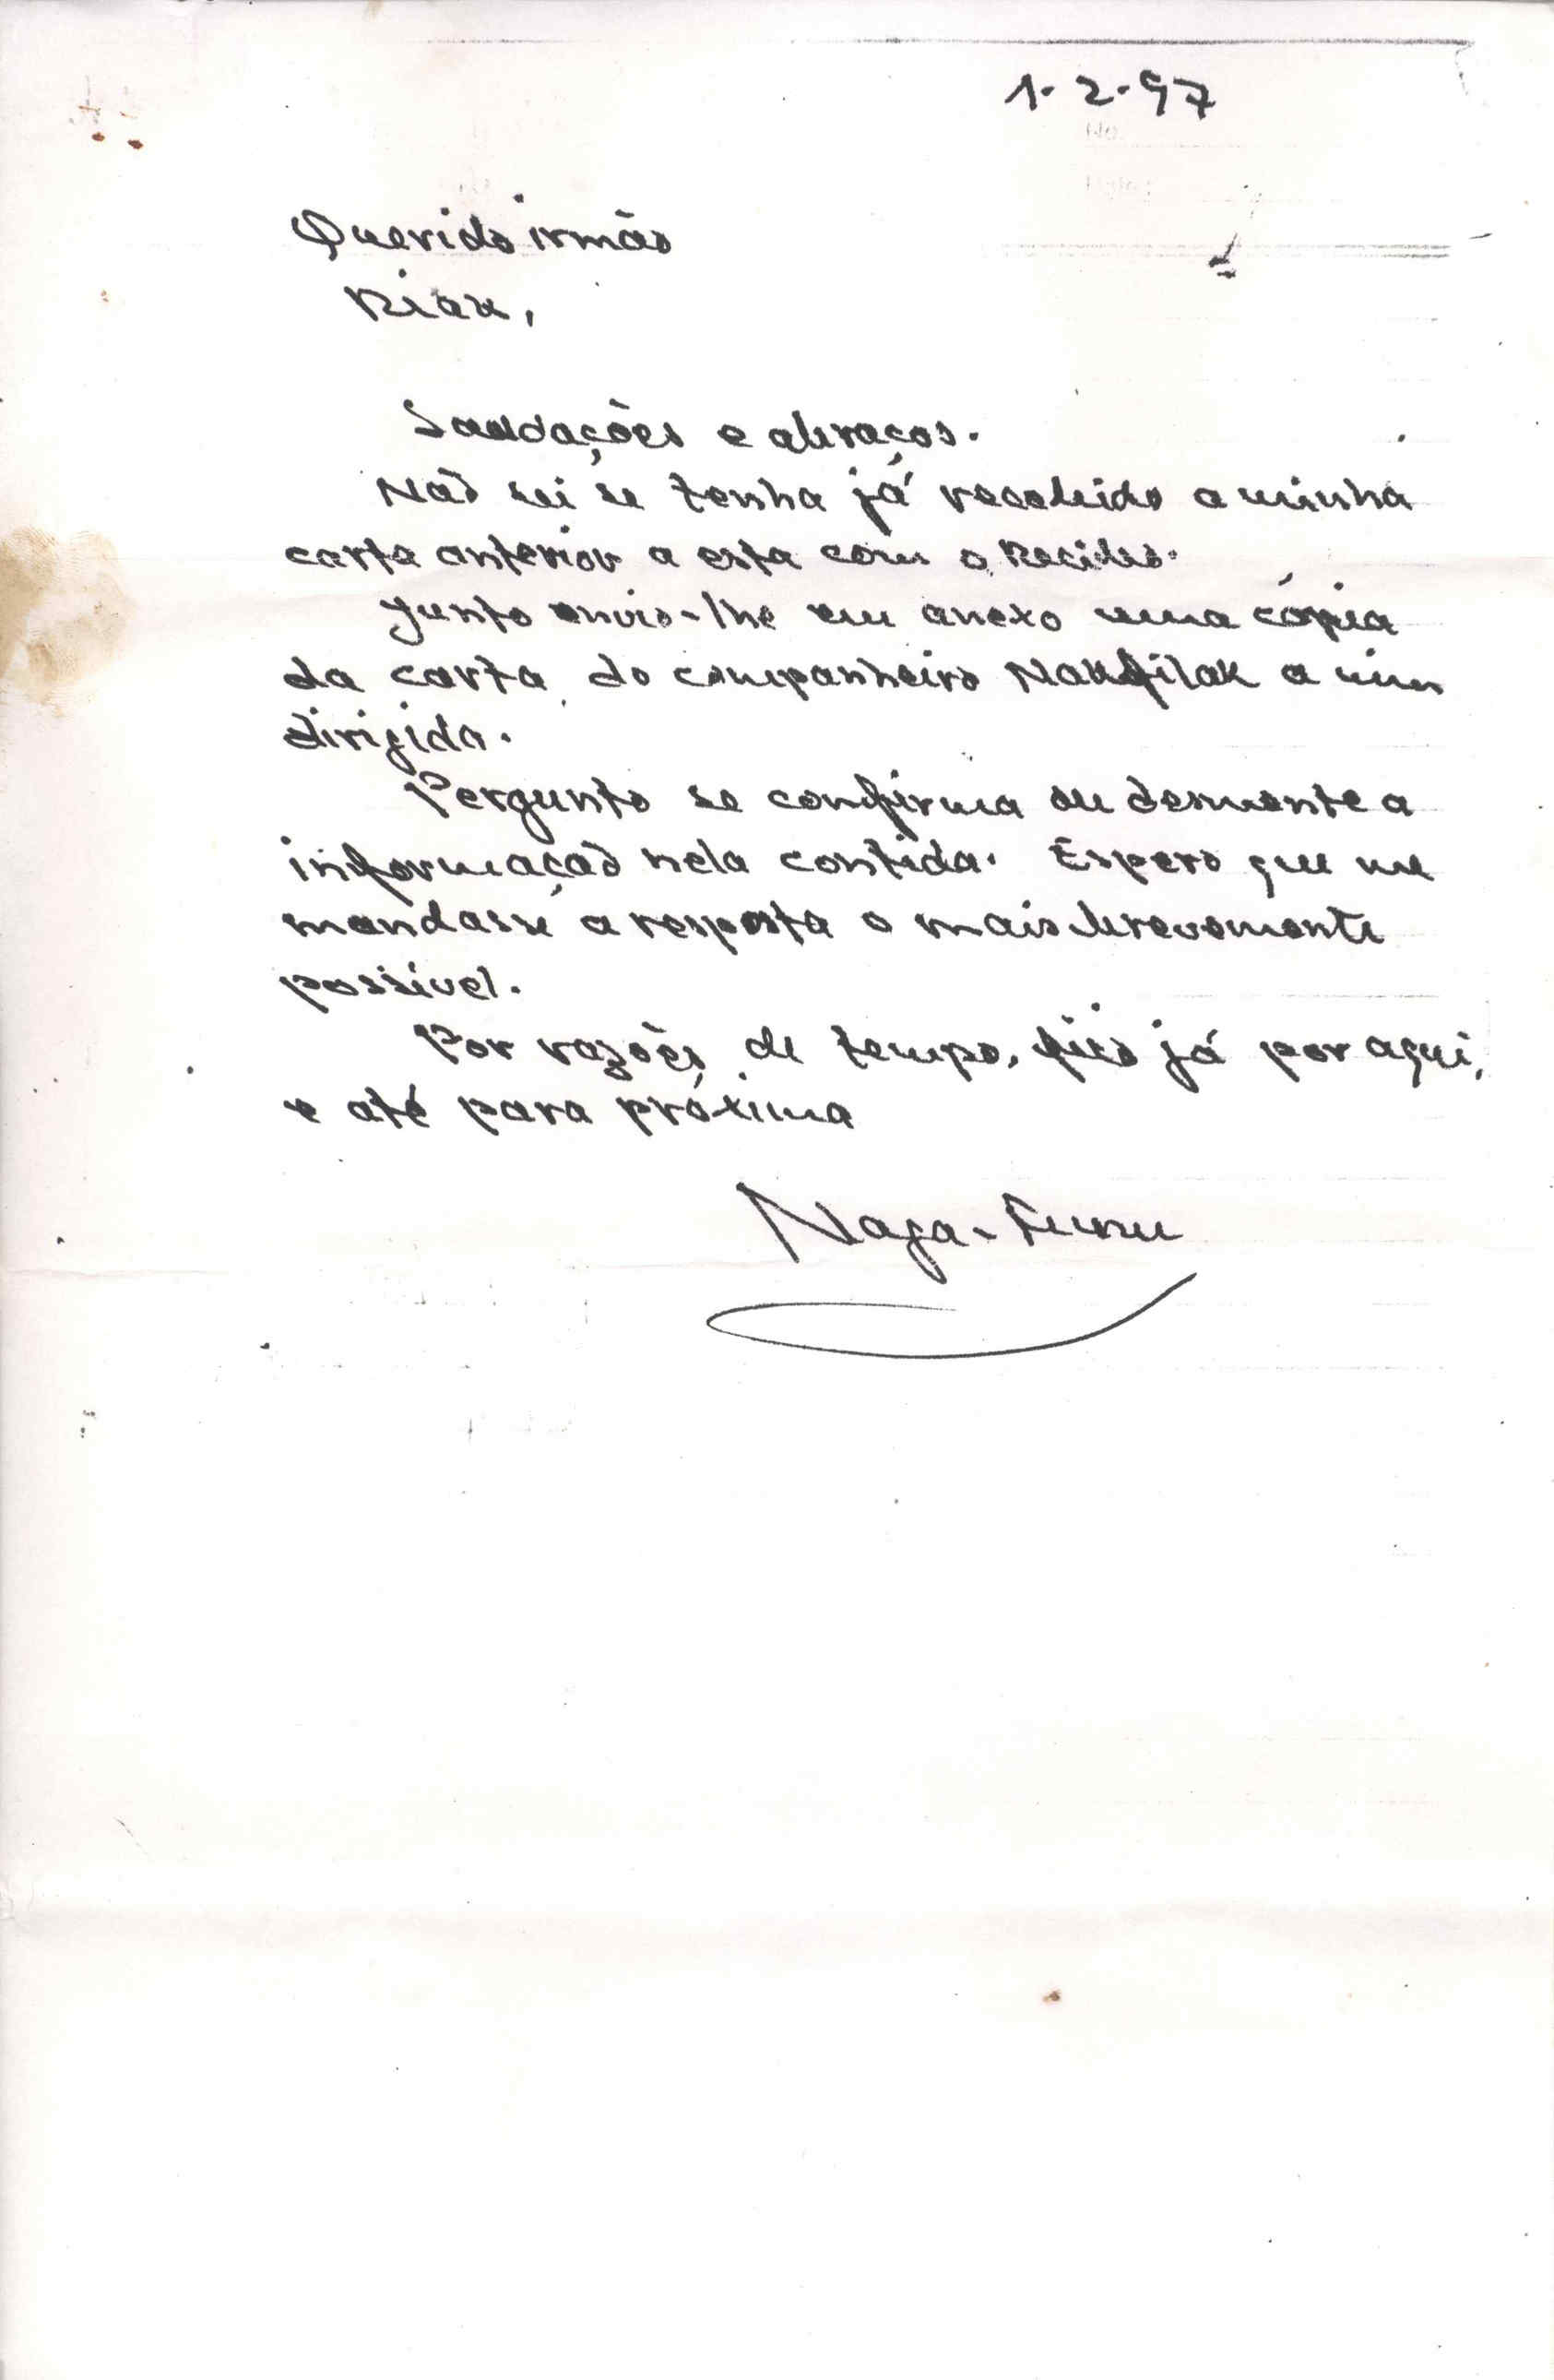 1-2-97
Querido irmão
Riak,
Saudações e abraços.
Não sei se tenha já recebido a minha
carta anterior a esta com o Recibo.
Junto envio-lhe em anexo uma cópia
da carta do companheiro Nakfilak a mim
dirigida.
Pergunto se confirma ou desmente a
informação nela contida. Espero que me
mandasse a resposta o mais brevemente
possível.
Por razões de tempo, fico já por aqui,
e até para próxima
Naga-